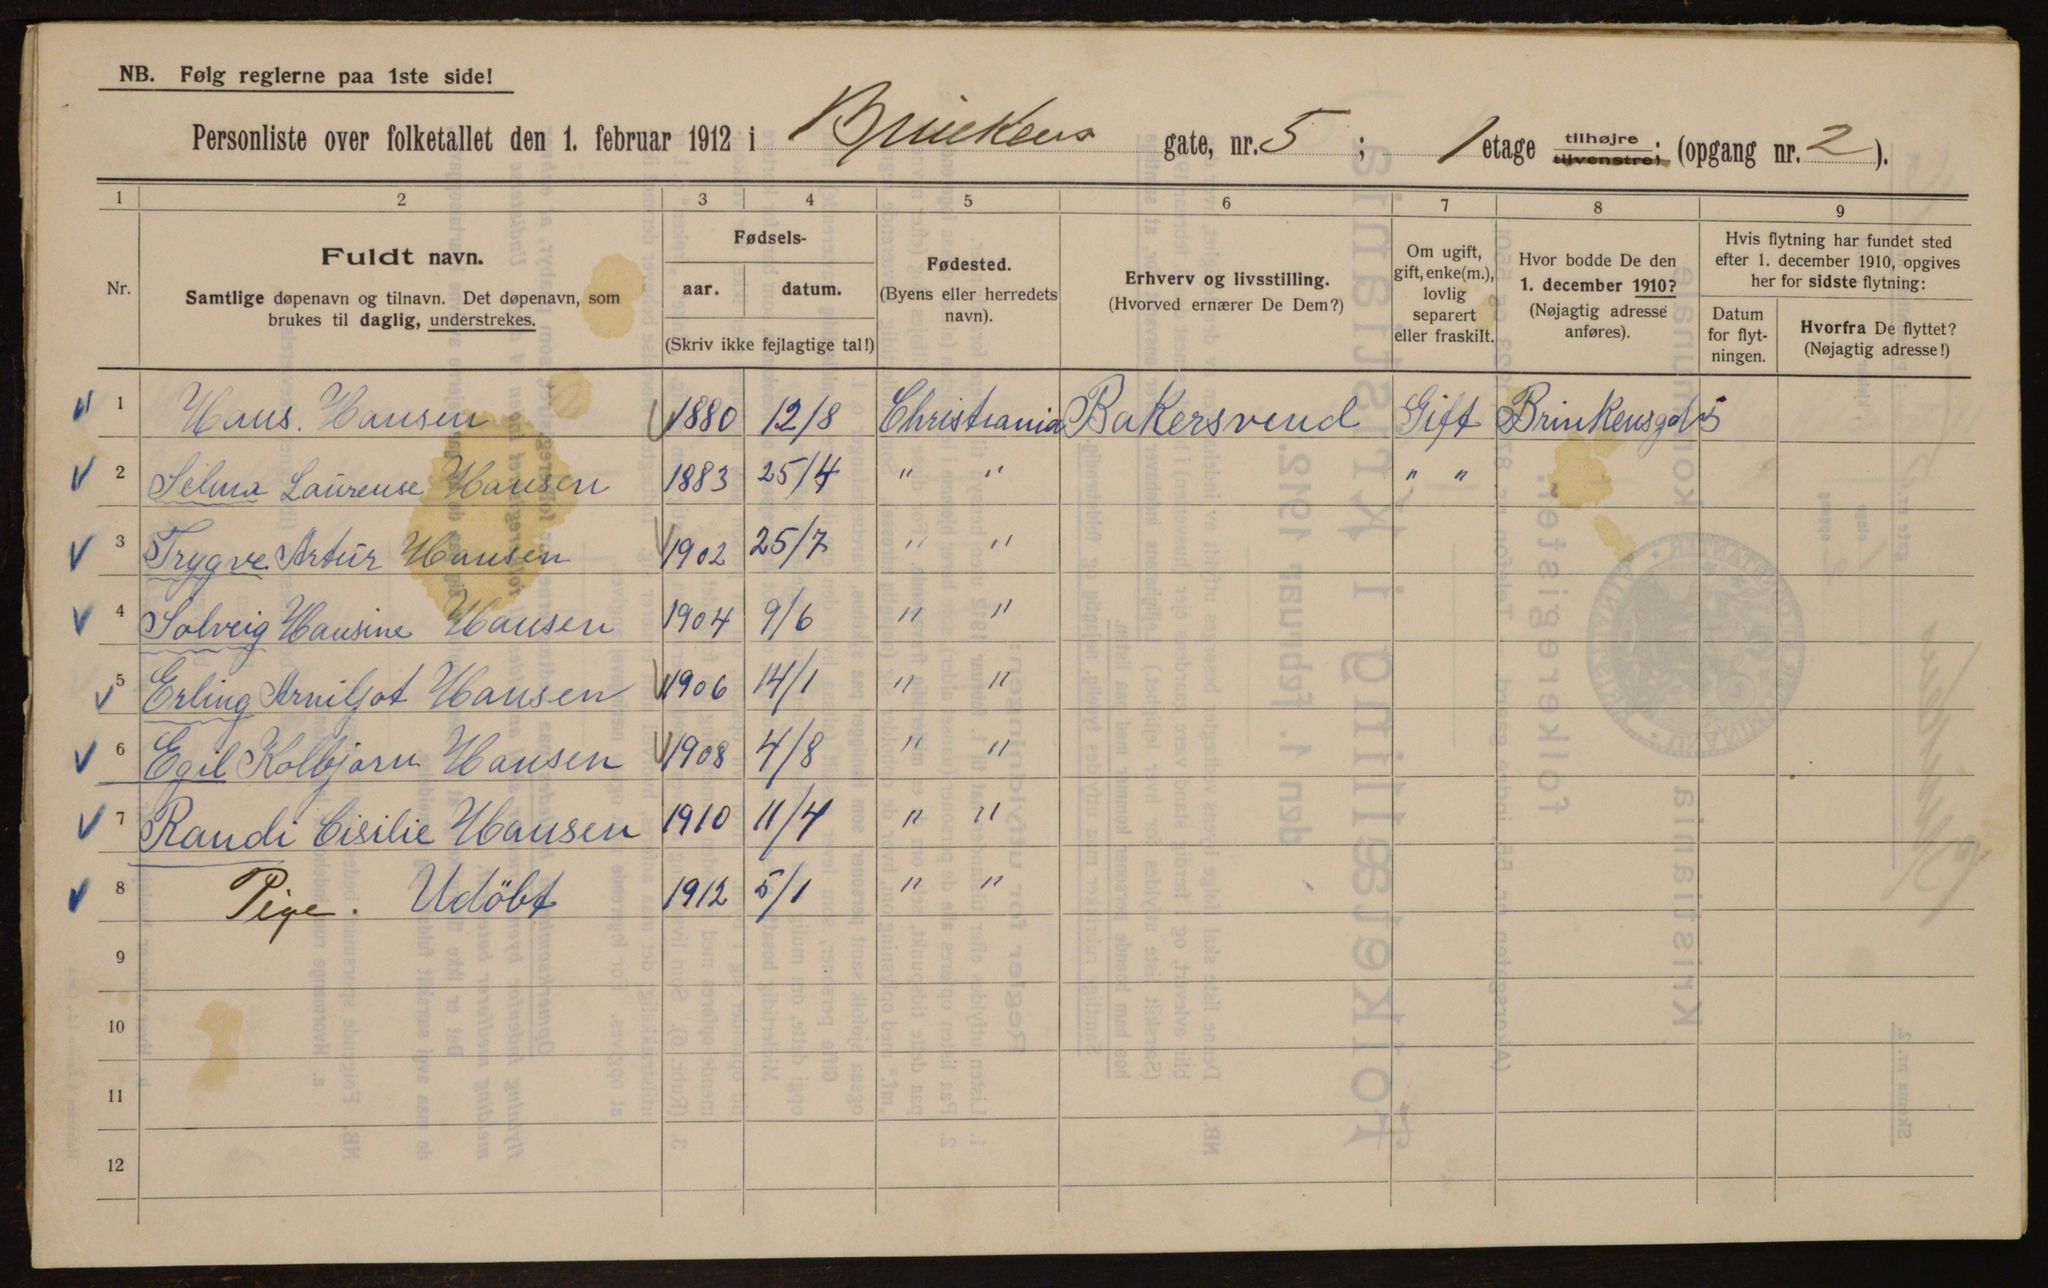 NB. Følg reglerne paa 1ste side!
Personliste over folketallet den 1. februar 1912 i Brinkens gate, nr. 5 ; 1 etage tilhøjre tilvenstre; (opgang nr. 2 ).
1 2 3 4 5 6 7 8 9
Nr.
Fuldt navn.
Samtlige døpenavn og tilnavn. Det døpenavn, som
brukes til daglig, understrekes.
Fødsels-
aar. datum.
(Skriv ikke fejlagtige tal!)
Fødested.
(Byens eller herredets
navn).
Erhverv og livsstilling.
(Hvorved ernærer De Dem?)
Om ugift,
gift, enke(m.),
lovlig
separert
eller fraskilt.
Hvor bodde De den
1. december 1910?
(Nøjagtig adresse
anføres).
Hvis flytning har fundet sted
efter 1. december 1910, opgives
her for sidste flytning:
Datum
for flyt-
ningen.
Hvorfra De flyttet?
(Nøjagtig adresse!)
1 Hans. Hansen 1880 12/8 Christiania Bakersvend Gift Brinkensgd 5
2 Selma Laurense Hansen 1883 25/4 " " " "
3 Trygve Artur Hansen 1902 25/7 " "
4 Solveig Hansine Hansen 1904 9/6 " "
5 Erling Arniljot Hansen 1906 14/1 " "
6 Egil Kolbjørn Hansen 1908 4/8 " "
7 Randi Cisilie Hansen 1910 11/4 " "
8 Pige. Udöbt 1912 5/1 " "
9
10
11
12